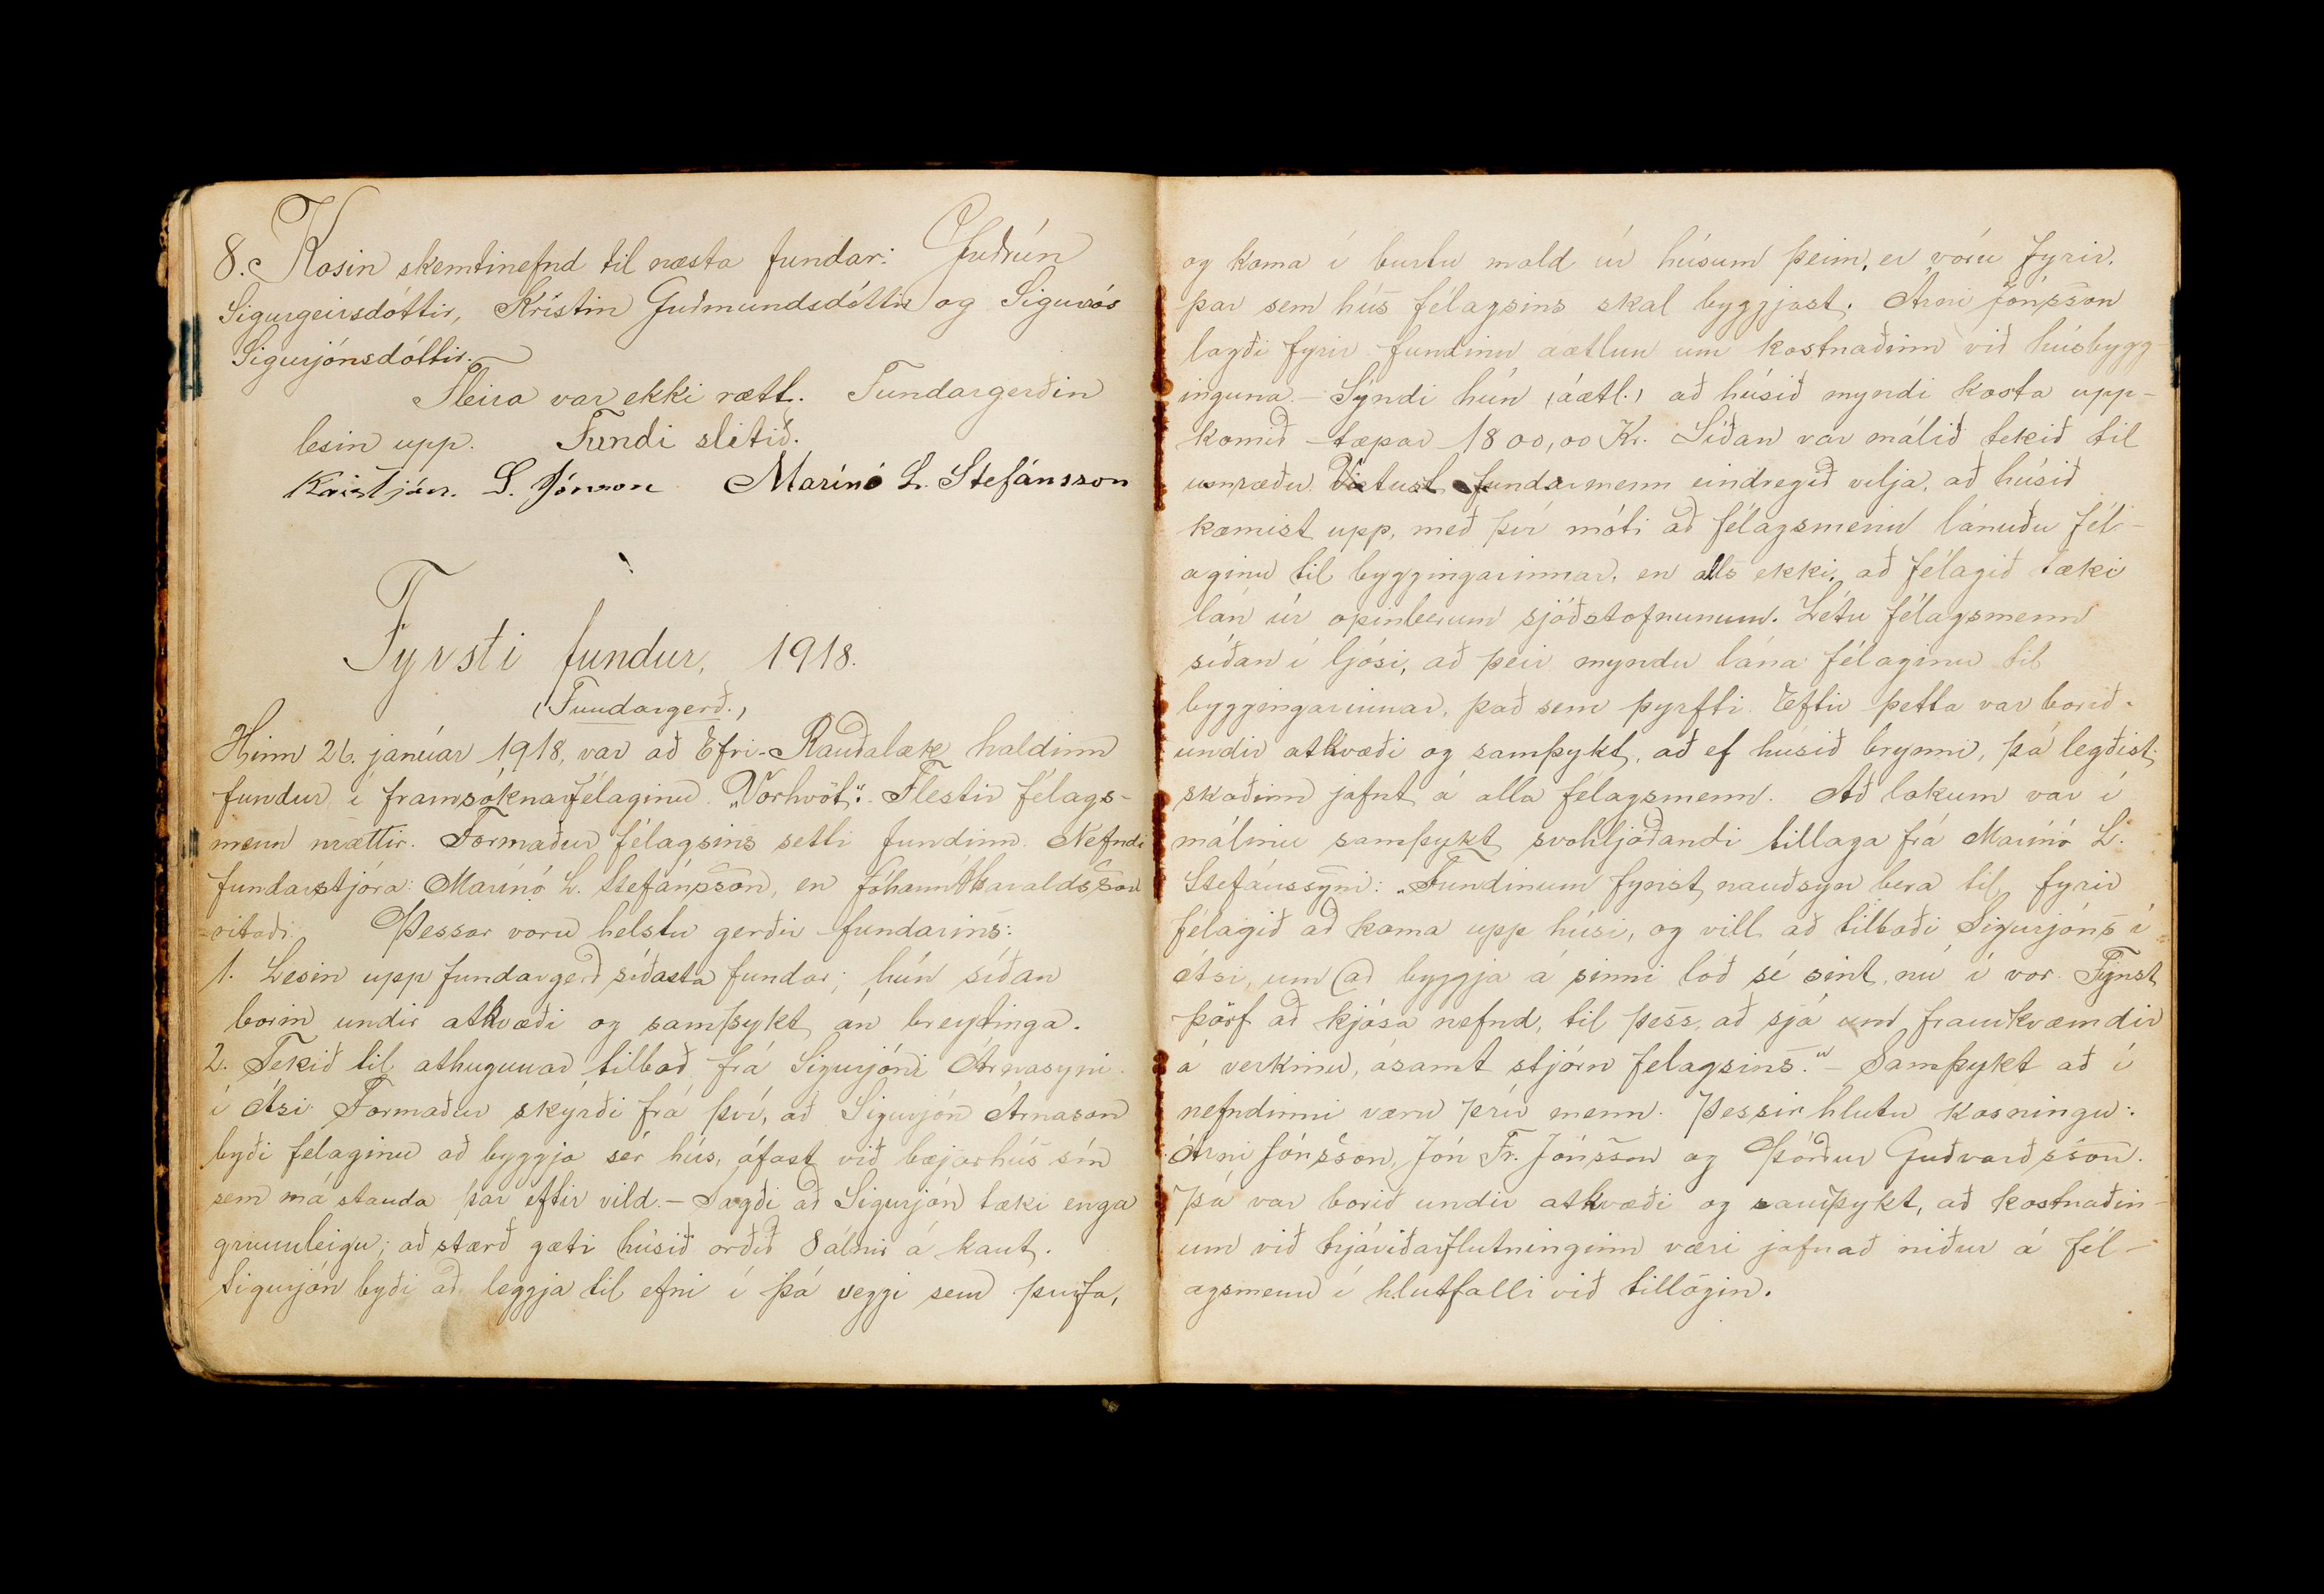 8. Kosin skemtinefnd til næsta fundar: Guðrún
Sigurgeirsdóttir, Kristín Guðmundsdóttir og Sigurrós
Sigurjónsdóttir.
Fleira var ekki rætt. Fundargerðin
lesin upp. Fundi slitið.
Kristján. S. Jónsson Marínó L. Stefánsson
Fyrsti fundur, 1918.
(Fundargerð.)
Hinn 26. janúar 1918, var að Efri-Rauðalæk haldinn
fundur í framsóknarfélaginu „Vorhvöt“. Flestir félags-
menn mættir. Formaður félagsins setti fundinn. Nefndi
fundarstjóra: Marínó L. Stefánsson, en Jóhann Haraldsson
ritaði. Þessar voru helstu gerðir fundarins:
1. Lesin upp fundargerð síðasta fundar; hún síðan
borin undir atkvæði og samþykt án breytinga.
2. Tekið til athugunar tilboð frá Sigurjóni Árnasyni
í Ási. Formaður skýrði frá því, að Sigurjón Árnason
byði félaginu að byggja sér hús, áfast við bæjarhús sín
sem má standa þar eftir vild. - Sagði að Sigurjón tæki enga
grunnleigu; að stærð gæti húsið orðið 8 álnir á kant.
Sigurjón byði að leggja til efni í þá veggi sem þurfa,
og koma í burtu mold úr húsum þeim, er vóru fyrir,
þar sem hús félagsins skal byggjast. Árni Jónsson
lagði fyrir fundinn áætlun um kostnaðinn við húsbygg-
inguna. - Sýndi hún (áætl.) að húsið myndi kosta upp-
komið tæpar 1800,00 Kr. Síðan var málið tekið til
umræðu. Virtust fundarmenn eindregið vilja, að húsið
kæmist upp, með því móti að félagsmenn lánuðu fél-
aginu til byggingarinnar, en alls ekki, að félagið tæki
lán úr opinberum sjóðstofnunum. Létu félagsmenn
síðan í ljósi, að þeir myndu lána félaginu til
byggingarinnar, það sem þyrfti. Eftir þetta var borið
undir atkvæði og samþykt, að ef húsið brynni, þá legðist
skaðinn jafnt á alla félagsmenn. Að lokum var í
málinu samþykt svohljóðandi tillaga frá Marínó L.
Stefánssyni: „Fundinum fynst nauðsyn bera til, fyrir
félagið að koma upp húsi, og vill að tilboði Sigurjóns í
Ási, um að byggja á sinni lóð sé sint, nú í vor. Fynst
þörf að kjósa nefnd, til þess, að sjá um framkvæmdir
á verkinu, ásamt stjórn felagsins." - Samþykt að í
nefndinni væru þrír menn. Þessir hlutu kosningu:
Árni Jónsson, Jón Fr. Jónsson og Þórður Guðvarðsson.
Þá var borið undir atkvæði og samþykt, að kostnaðin-
um við trjáviðarflutninginn væri jafnað niður á fél-
agsmenn í hlutfalli við tillögin.